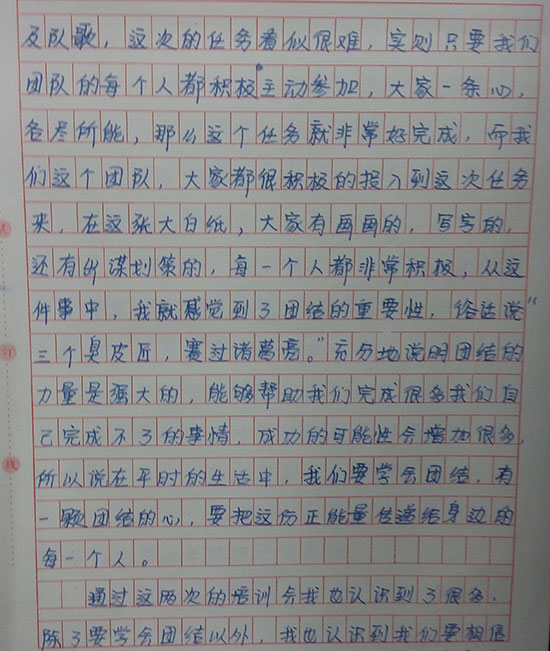 及队歌，这次的任务看似很难，实则只要我们
团队的每个人都积极主动参加，大家一条心，
各尽所能，那么这个任务就非常好完成，而我
们这个团队，大家都很积极的投入到这次任务
来，在这张大白纸，大家有画画的，写字的，
还有出谋划策的，每一个人都非常积极，从这
件事中，我就感觉到了团结的重要性，俗话说“
三个臭皮匠，赛过诸葛亮。”充分地说明团结的
力量是强大的，能够帮助我们完成很多我们自
己完成不了的事情，成功的可能性会增加很多，
所以说在平时的生活中，我们要学会团结，有
一颗团结的心，要把这份正能量传递给身边的
每一个人。
通过这两次的培训会我也认识到了很多，
除了要学会团结以外，我也认识到我们要相信
订
线